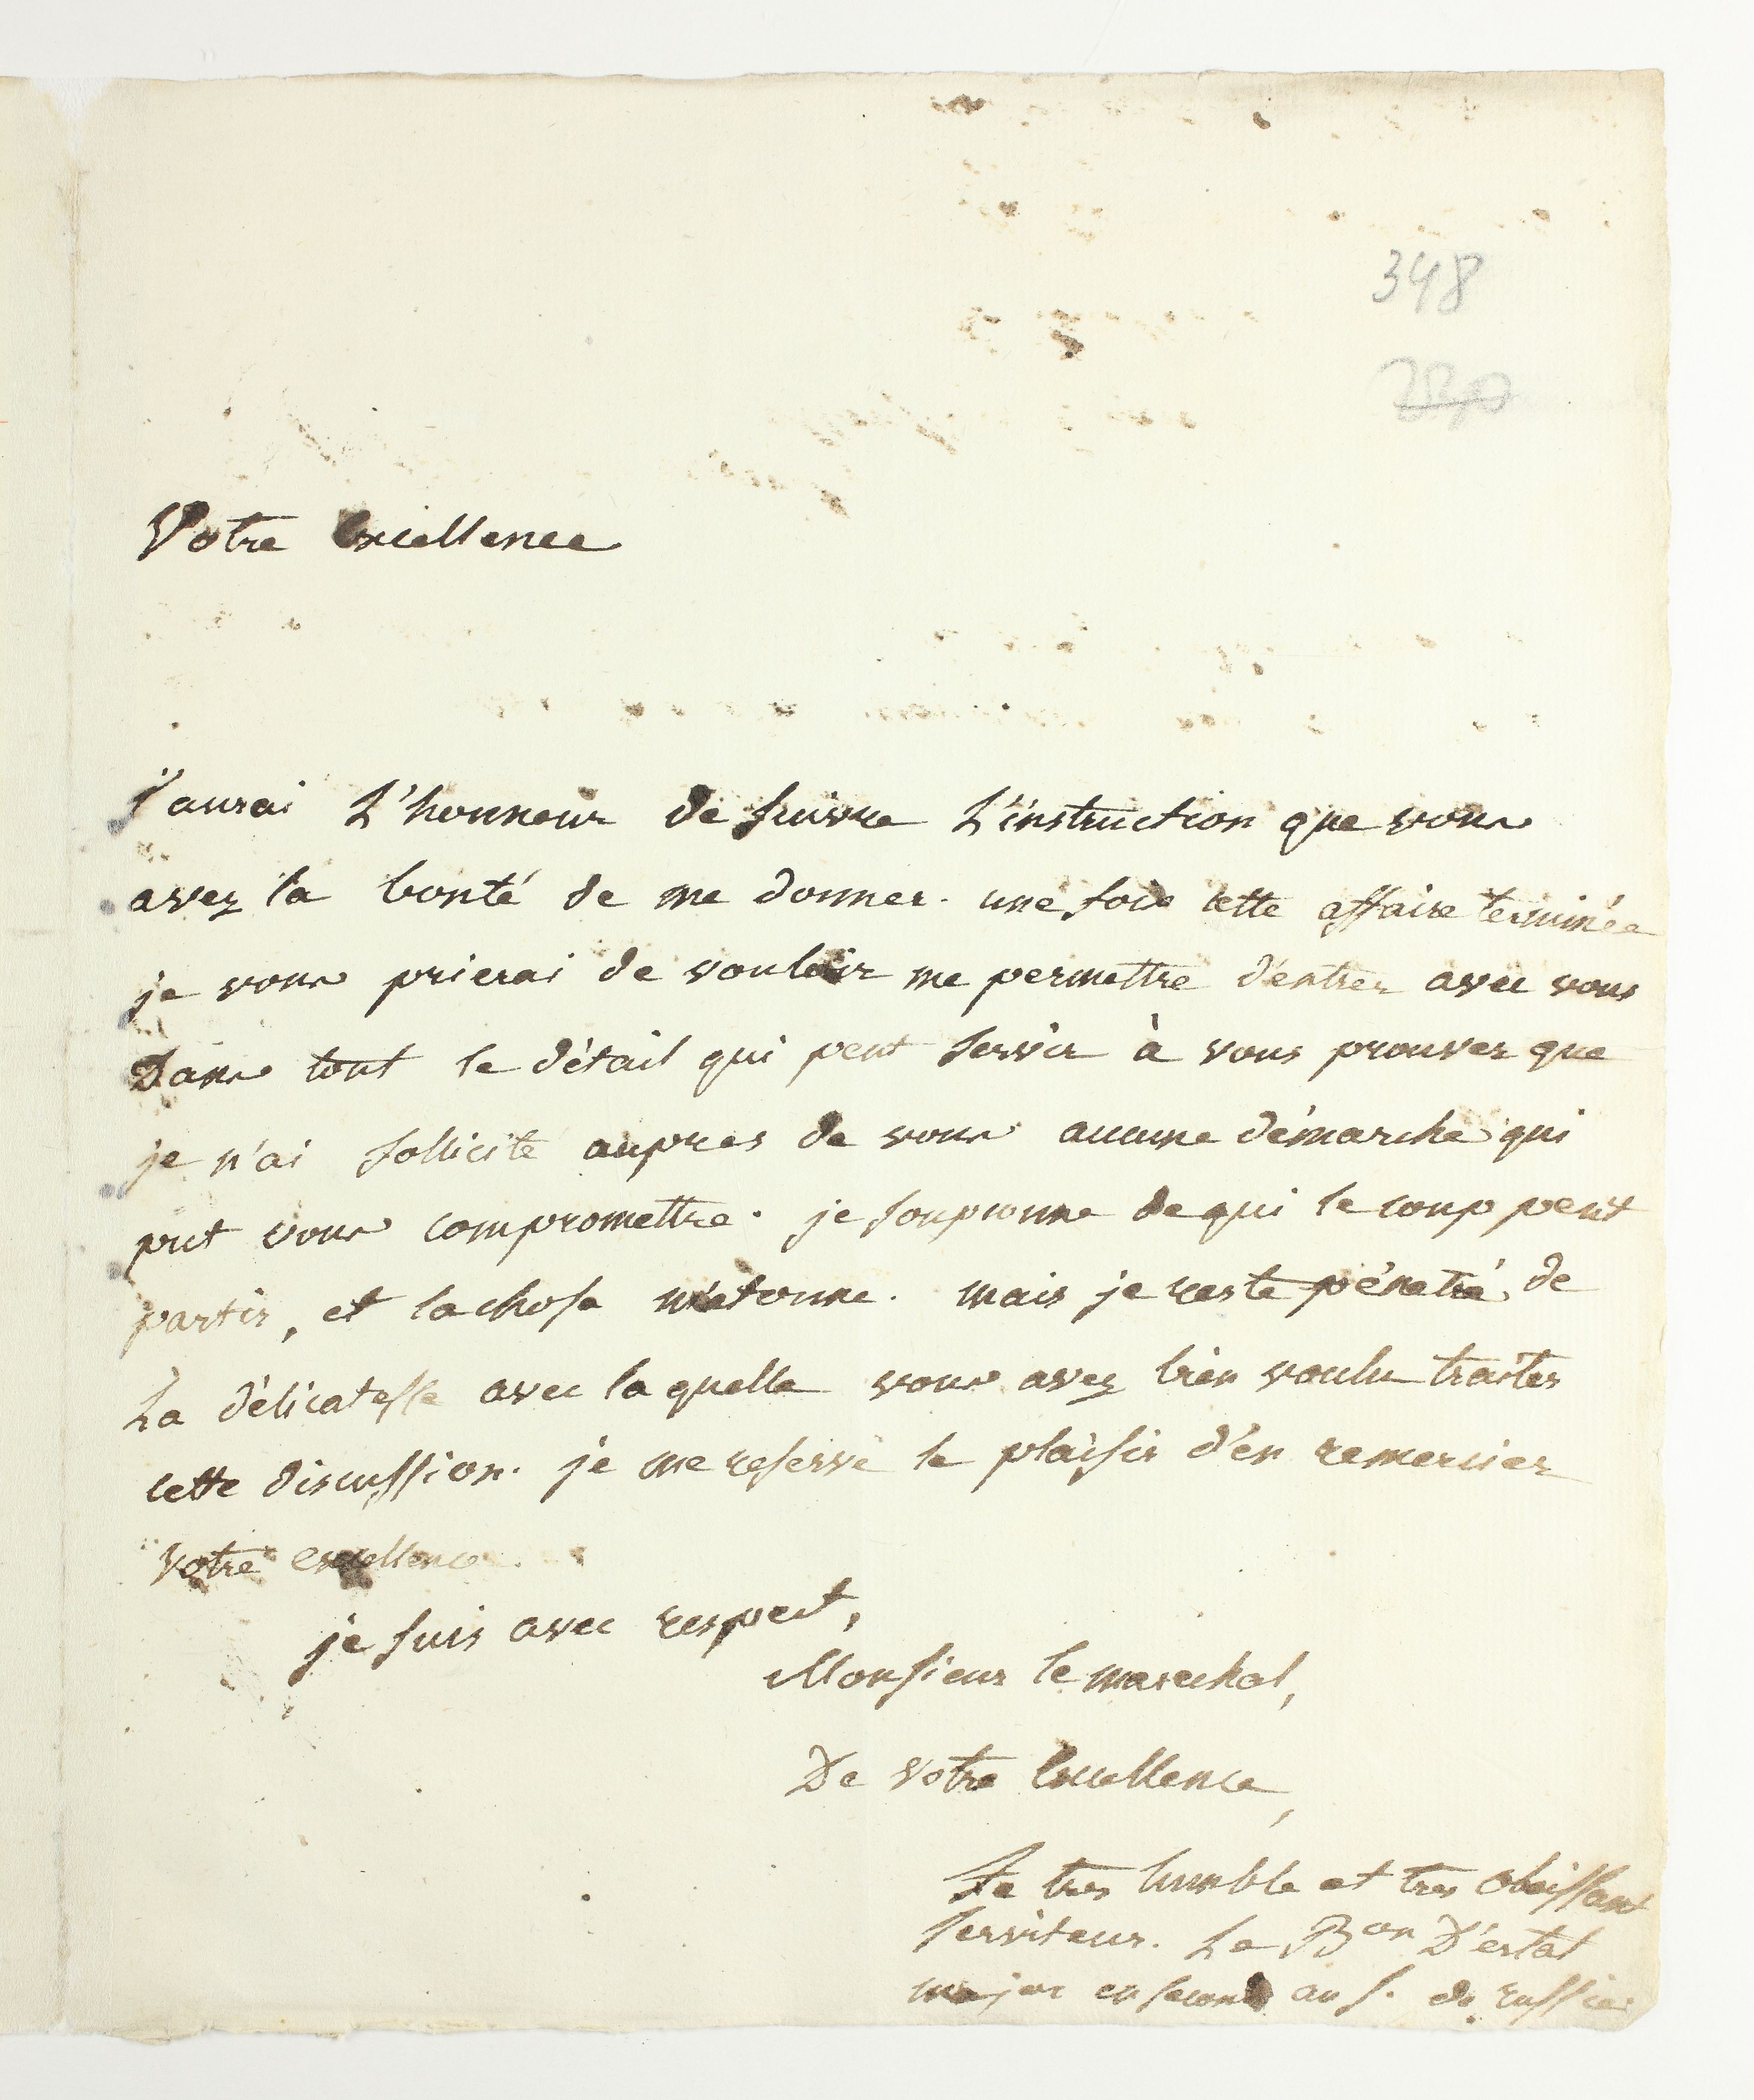 348
Votre Excellence
j'aurai L'honneur de suivre L'instruction que vous
avez la bonté de me donner. une fois cette affaire terminée
je vous prierai de vouloir me permettre d'entrer avec vous
Dans tout le détail qui peut servir à vous prouver que
je n'ai sollicité aupres de vous aucune démarche qui
put vous compromettre. je soupconne de qui le coup peut
partir, et la chose m'etonne. mais je reste pénetré de
La délicatesse avec la quelle vous avez bien voulu traiter
cette discussion. je me reserve le plaisir d'en remercier
votre excellence.
je suis avec respect,
Monsieur le marechal,
De votre Excellence,
Le tres humble et tres obeissant
serviteur. Le Bon D'estat
major en second au s. de russie